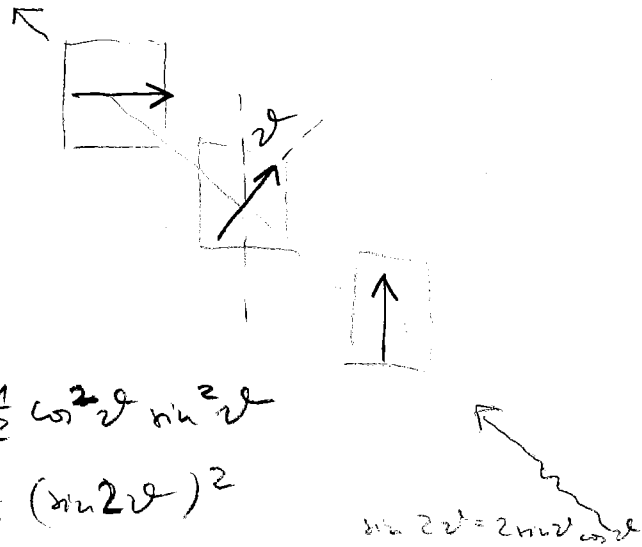 ϑ
½ cos²ϑ sin²ϑ
(sin2ϑ)²
sin 2ϑ = 2 sinϑ cosϑ